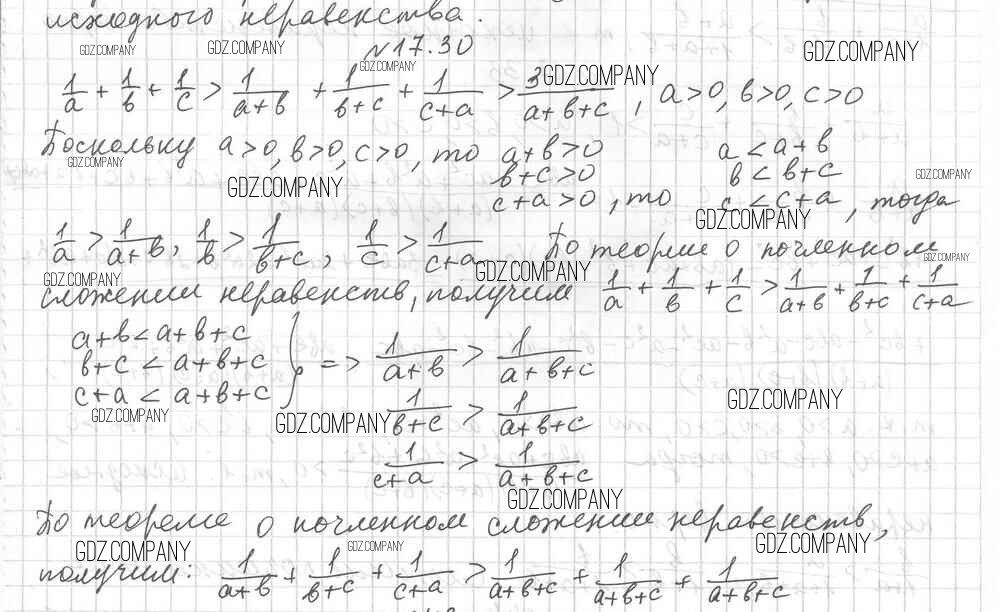 исходного неравенства.
GDZ.COMPANY GDZ.COMPANY №17.30 GDZ.COMPANY
GDZ.COMPANY GDZ.COMPANY
1/a + 1/b + 1/c > 1/(a+b) + 1/(b+c) + 1/(c+a) > 3/(a+b+c), a>0, b>0, c>0
Поскольку a>0, b>0, c>0, то a+b>0 a < a+b
GDZ.COMPANY b+c>0 b < b+c GDZ.COMPANY
GDZ.COMPANY c+a>0, то c < c+a, тогда
GDZ.COMPANY
1/a > 1/(a+b), 1/b > 1/(b+c), 1/c > 1/(c+a) По теории о почленном
GDZ.COMPANY GDZ.COMPANY GDZ.COMPANY
сложении неравенств, получим 1/a + 1/b + 1/c > 1/(a+b) + 1/(b+c) + 1/(c+a)
a+b < a+b+c
b+c < a+b+c } => 1/(a+b) > 1/(a+b+c)
c+a < a+b+c
GDZ.COMPANY GDZ.COMPANY 1/(b+c) > 1/(a+b+c) GDZ.COMPANY
1/(c+a) > 1/(a+b+c)
GDZ.COMPANY
По теореме о почленном сложении неравенств,
GDZ.COMPANY GDZ.COMPANY GDZ.COMPANY
получим: 1/(a+b) + 1/(b+c) + 1/(c+a) > 1/(a+b+c) + 1/(a+b+c) + 1/(a+b+c)